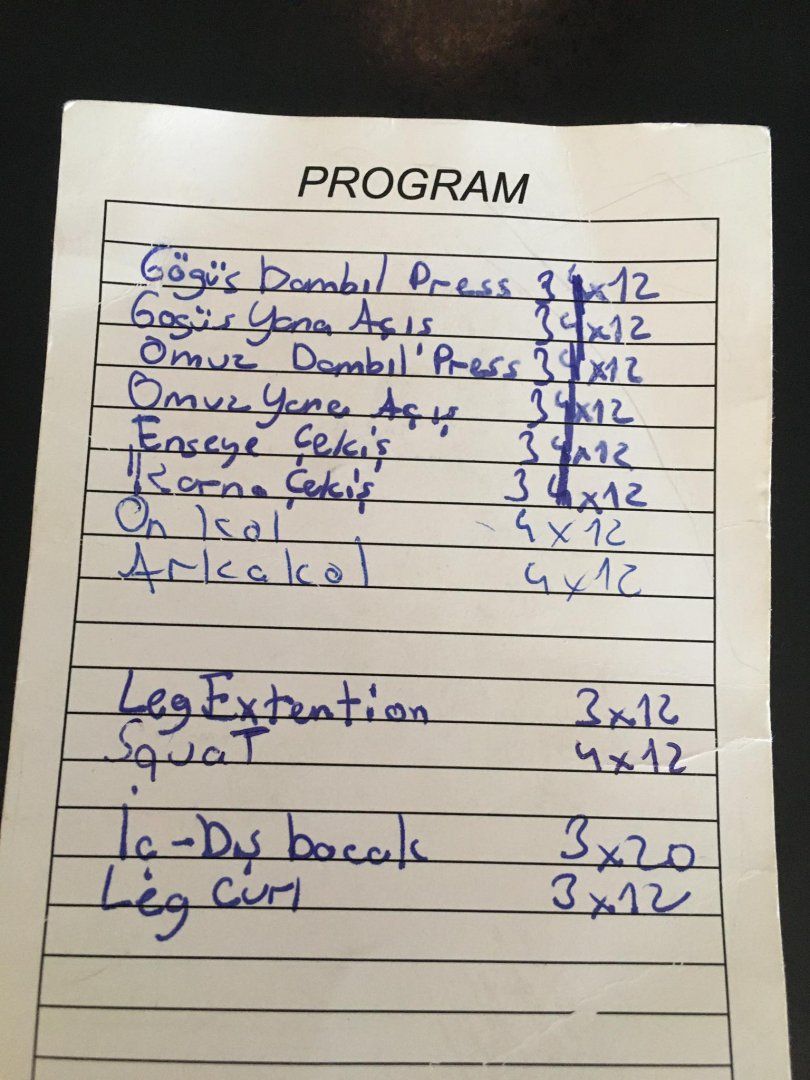 PROGRAM
Göğüs Dambıl Press 3 4x12
Gogüs Yana Açıs 3 4x12
Omuz Dambıl Press 3 4x12
Omuz Yana Açış 3 4x12
Enseye Çekiş 3 4x12
Karna Çekiş 3 4x12
Ön kol 4x12
Arka kol 4x12
Leg Extention 3x12
SquaT 4x12
İç-Dış bacak 3x20
Leg Curl 3x12